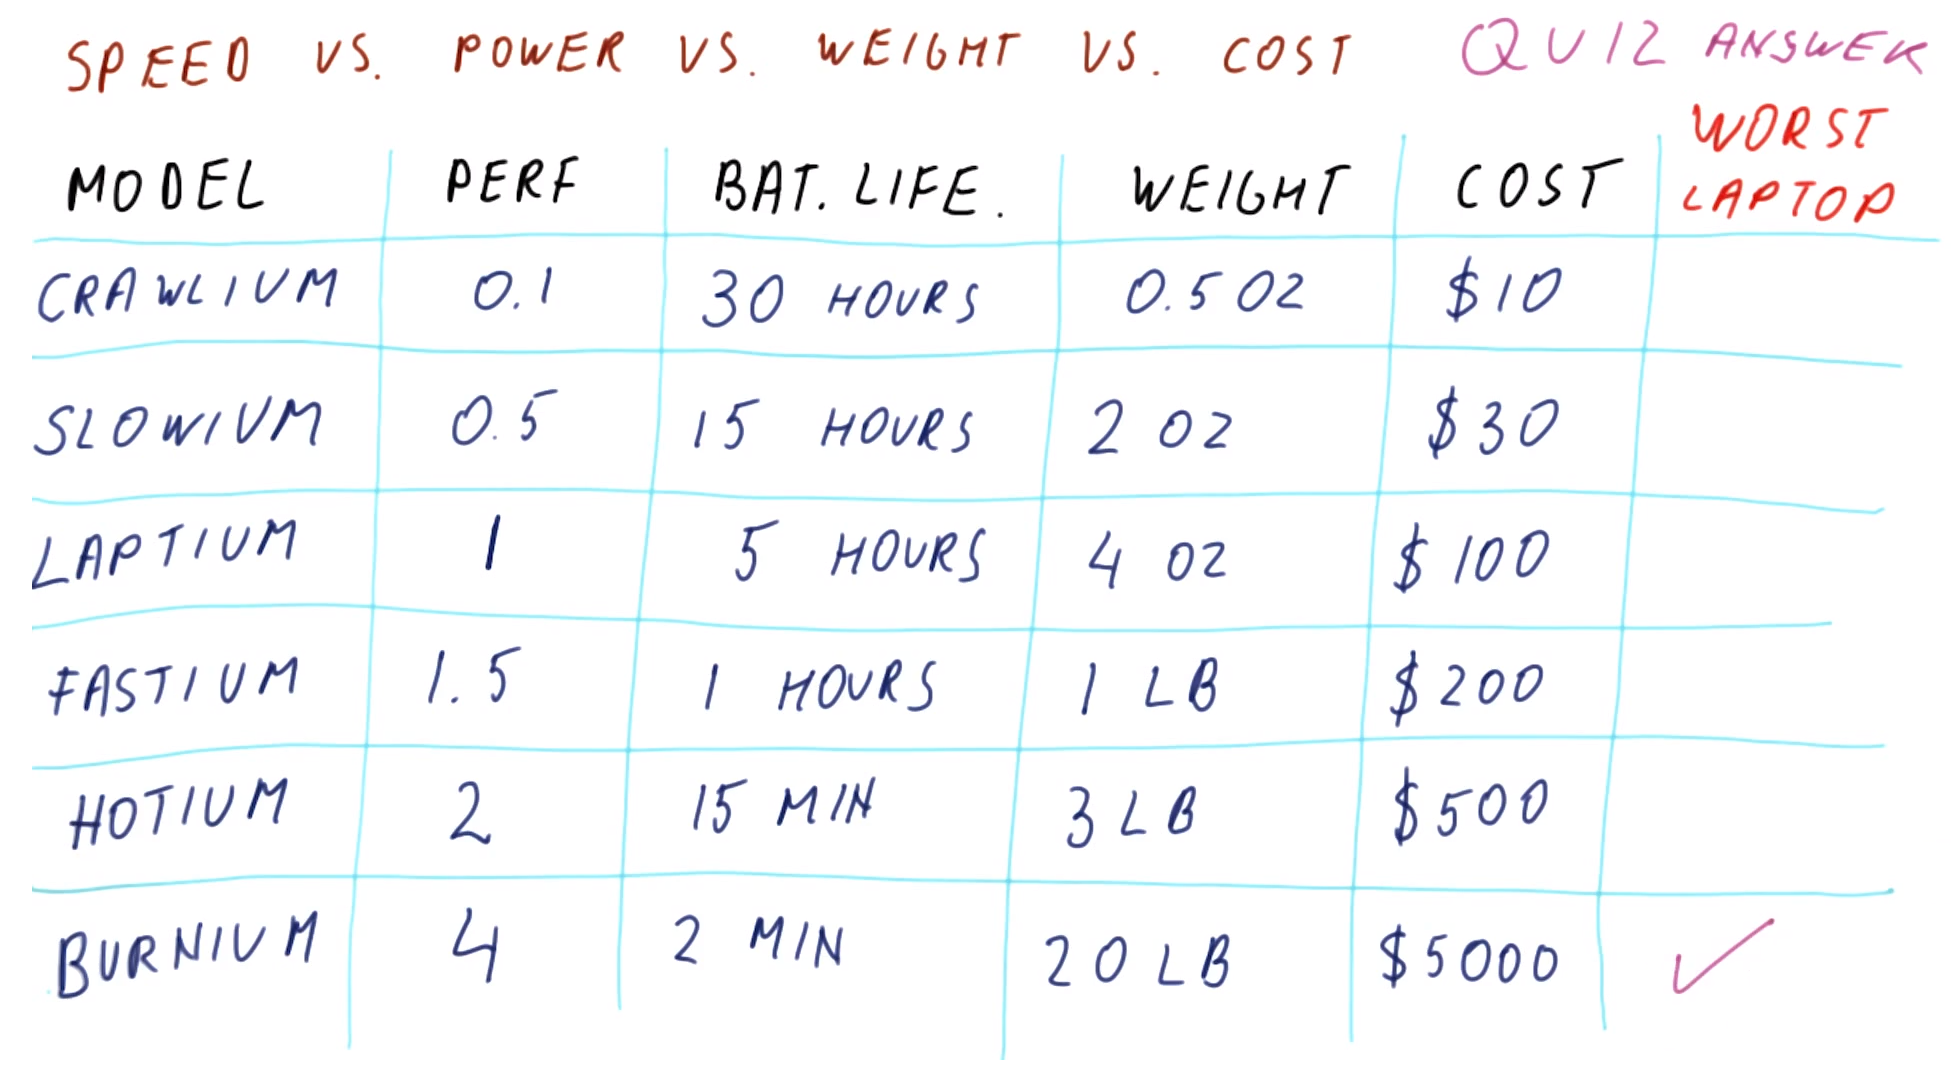 SPEED VS. POWER VS. WEIGHT VS. COST QUIZ ANSWER
WORST LAPTOP
MODEL PERF BAT. LIFE. WEIGHT COST
CRAWLIUM 0.1 30 HOURS 0.5 OZ $10
SLOWIUM 0.5 15 HOURS 2 OZ $30
LAPTIUM 1 5 HOURS 4 OZ $100
FASTIUM 1.5 1 HOURS 1 LB $200
HOTIUM 2 15 MIN 3 LB $500
BURNIUM 4 2 MIN 20 LB $5000 ✓